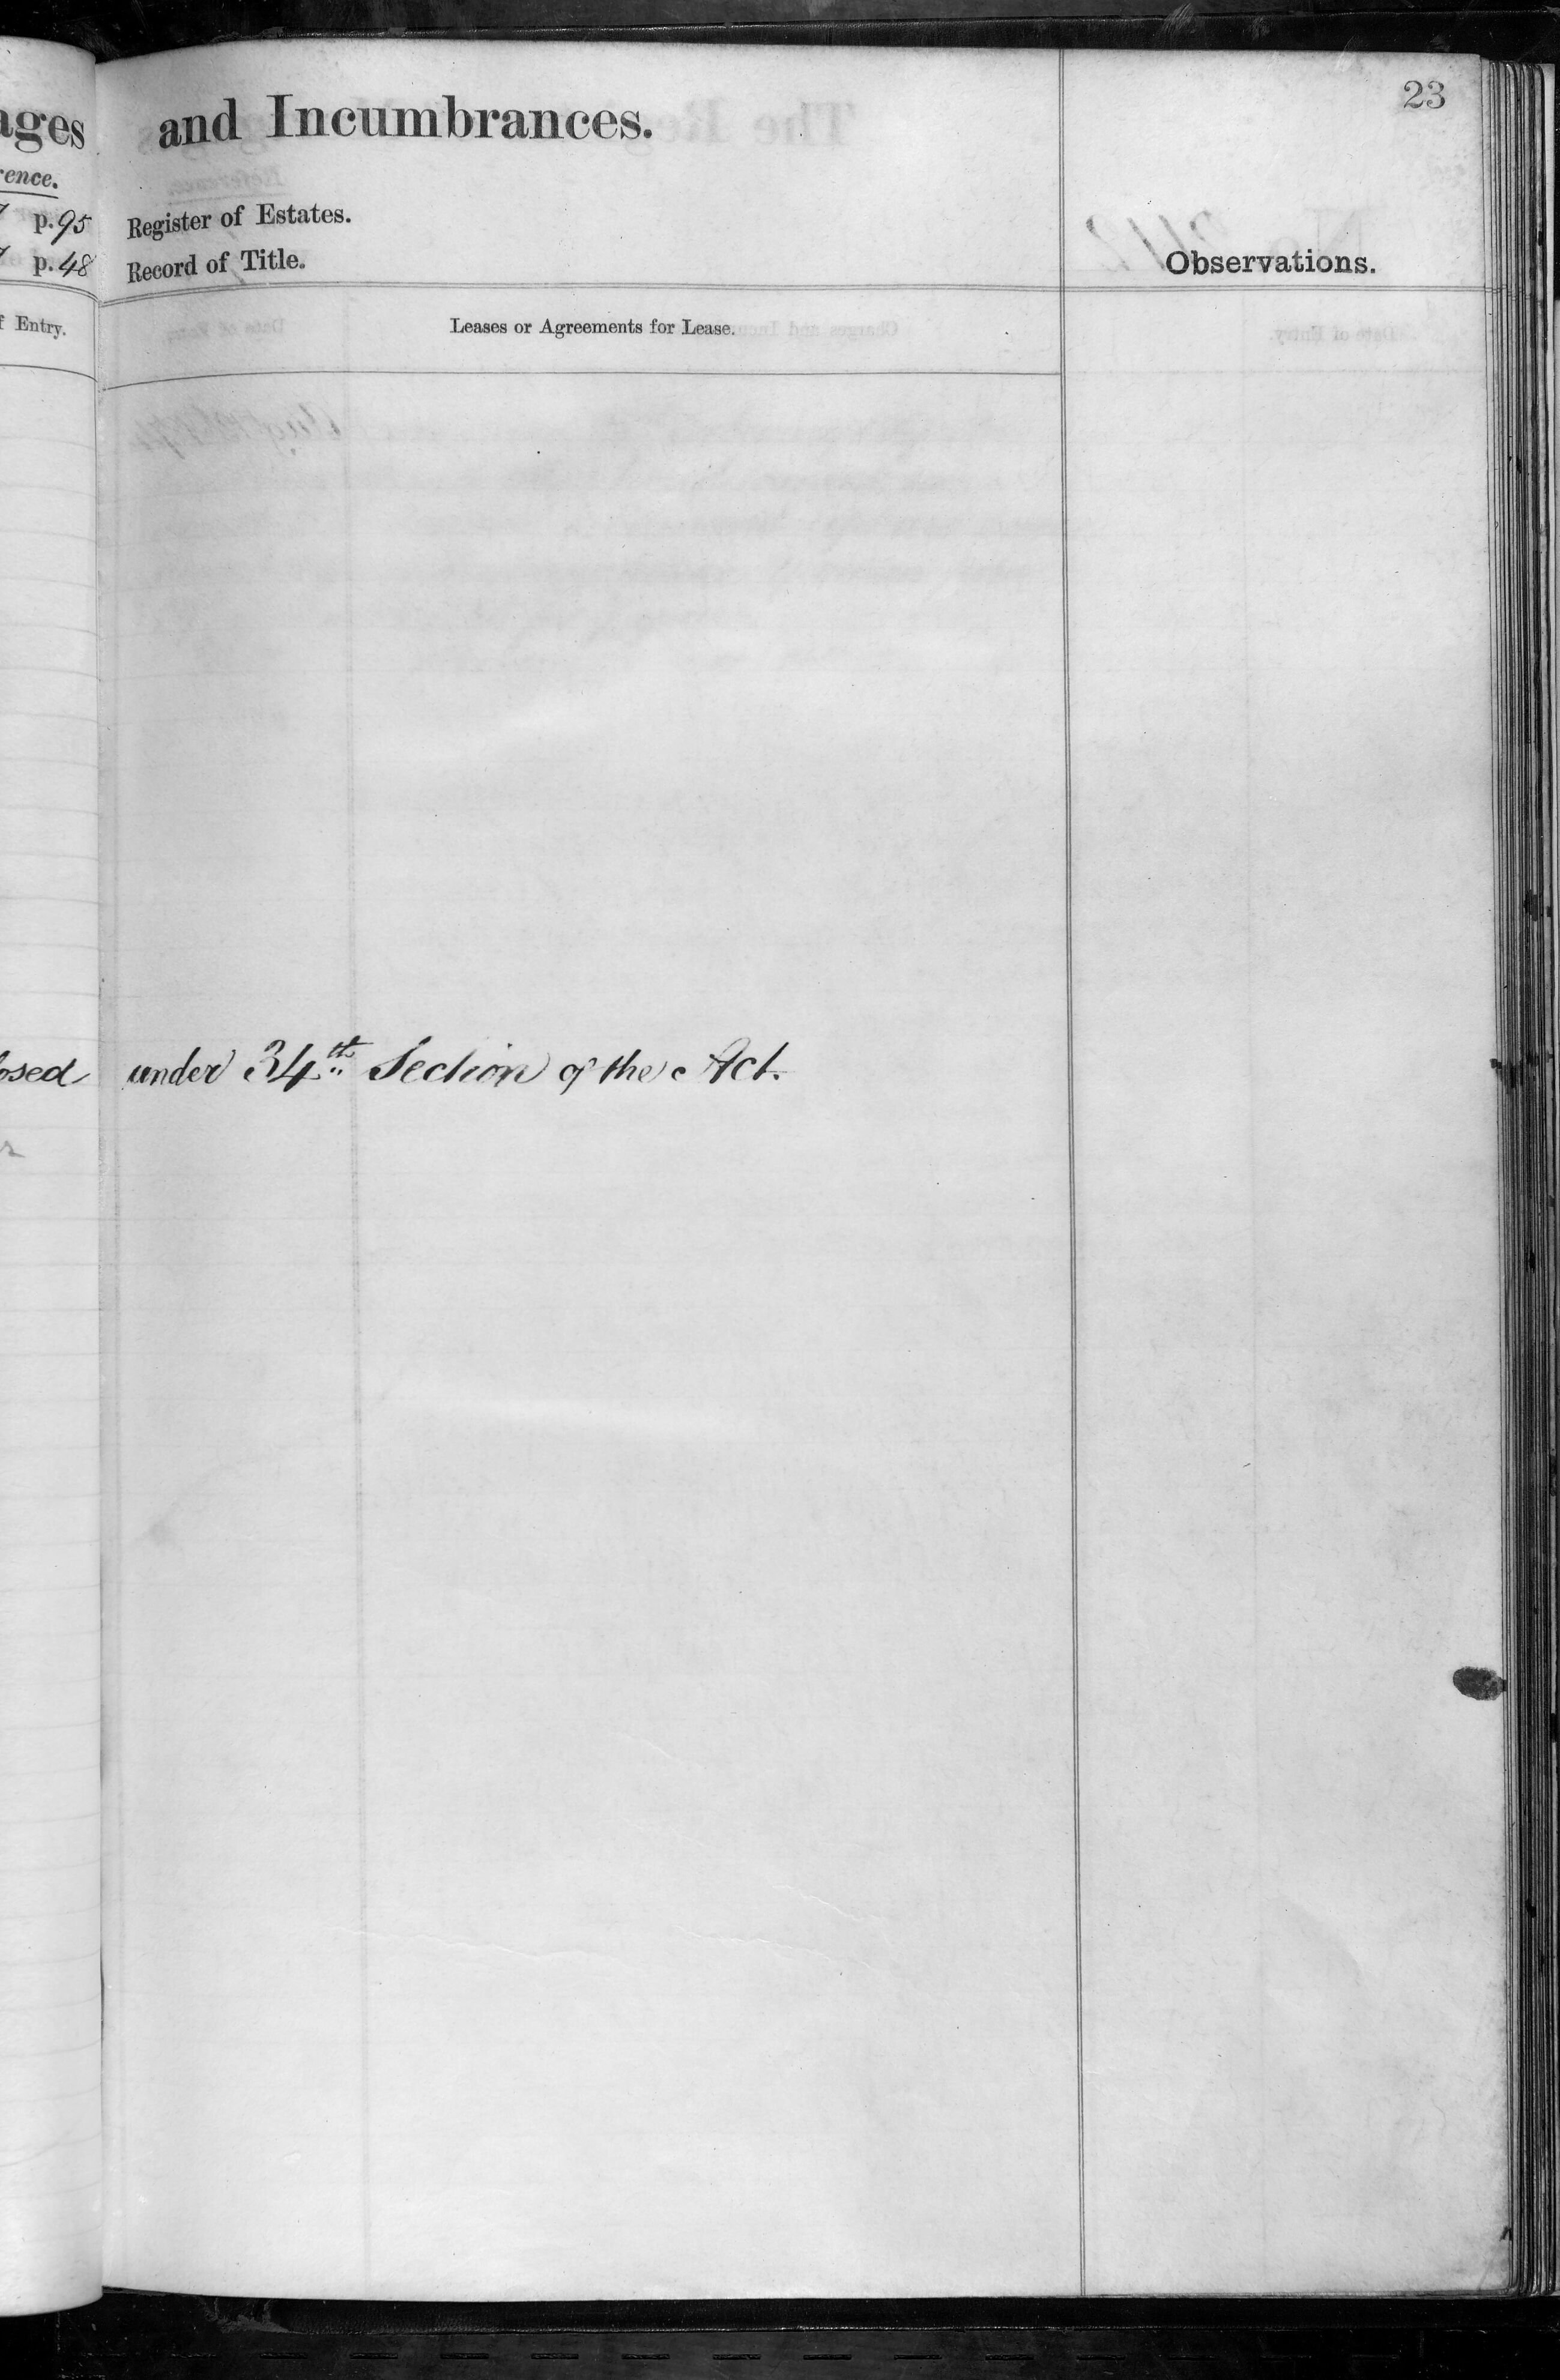 23
ages and Incumbrances.
rence.
p. 95 Register of Estates.
p. 48 Record of Title.
Observations.
f Entry.
Leases or Agreements for Lease.
osed under 34th Section of the Act.